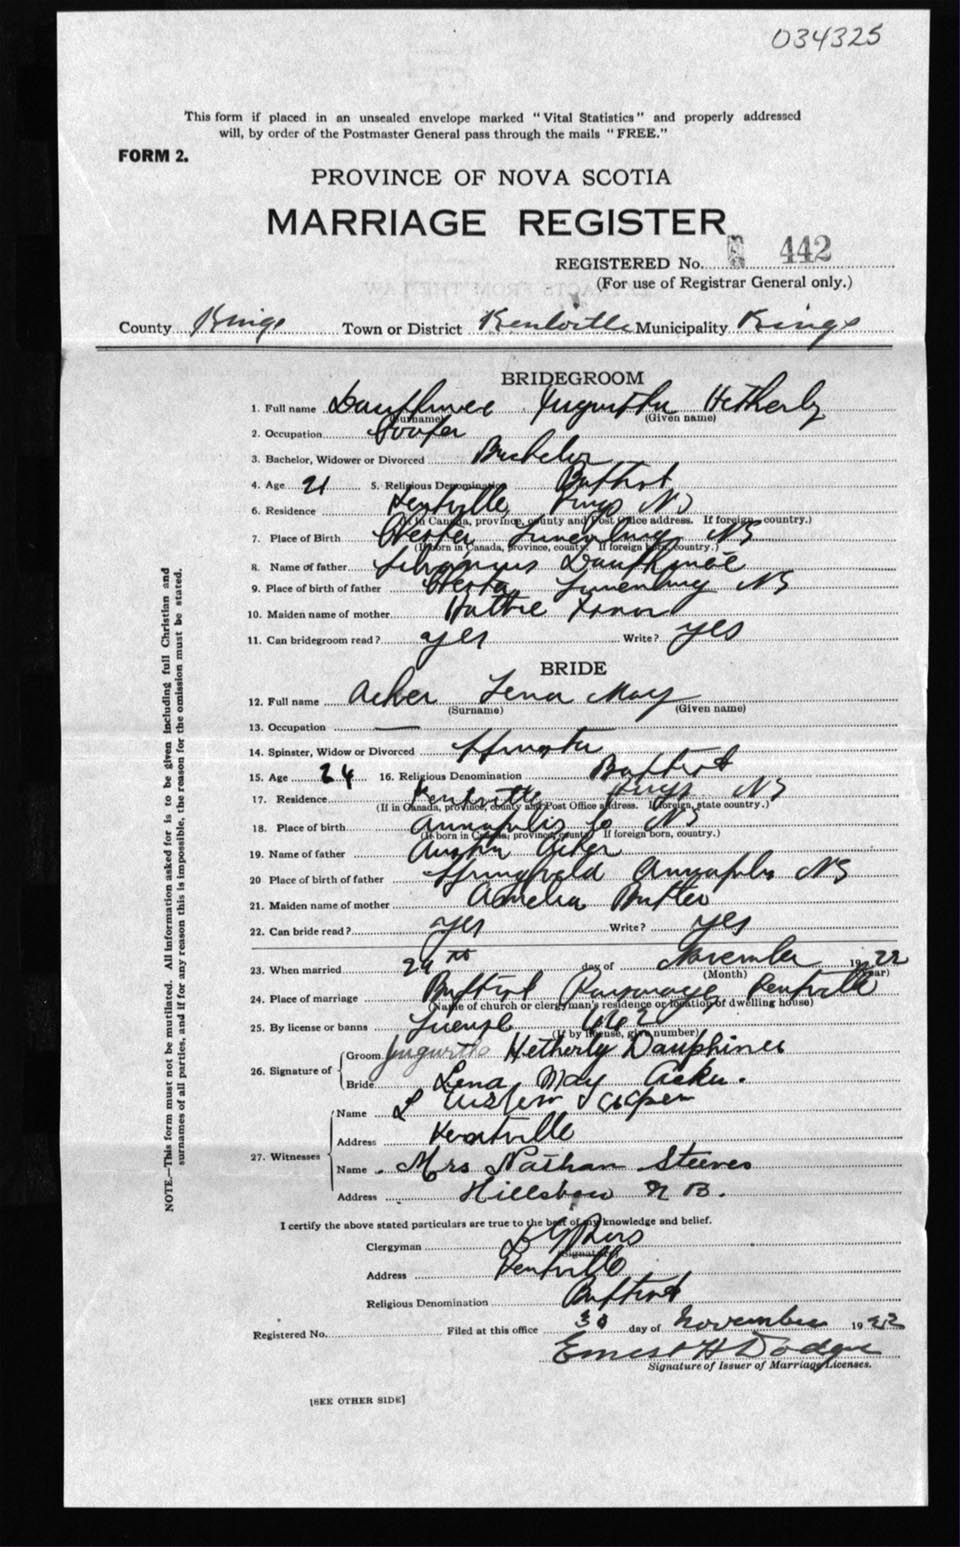 034325
This form if placed in an unsealed envelope marked "Vital Statistics" and properly addressed
will, by order of the Postmaster General pass through the mails "FREE."
FORM 2.
PROVINCE OF NOVA SCOTIA
MARRIAGE REGISTER
REGISTERED No. 442
(For use of Registrar General only.)
County Kings Town or District Kentville Municipality Kings
BRIDEGROOM
1. Full name Dauphinee Jugurtha Hetherly
(Surname) (Given name)
2. Occupation Cooper
3. Bachelor, Widower or Divorced Bachelor
4. Age 21 5. Religious Denomination Baptist
6. Residence Kentville Kings NS
(If in Canada, province, county and Post Office address. If foreign, country.)
7. Place of Birth Lunenburg NS
(If born in Canada, province, county. If foreign born, country.)
8. Name of father Dauphinee
9. Place of birth of father Lunenburg NS
10. Maiden name of mother Hattie
11. Can bridegroom read? yes Write? yes
BRIDE
12. Full name Acker Lena May
(Surname) (Given name)
13. Occupation —
14. Spinster, Widow or Divorced Spinster
15. Age 24 16. Religious Denomination Baptist
17. Residence Kentville Kings NS
(If in Canada, province, county and Post Office address. If foreign, state country.)
18. Place of birth Annapolis Co NS
(If born in Canada, province, county. If foreign born, country.)
19. Name of father Austin Acker
20 Place of birth of father Springfield Annapolis NS
21. Maiden name of mother Amelia
22. Can bride read? yes Write? yes
23. When married 29th day of November 1922
(Month) (Year)
24. Place of marriage Baptist Parsonage, Kentville
(Name of church or clergyman's residence or location of dwelling house)
25. By license or banns License
(If by license, give number)
26. Signature of
Groom Jugurtha Hetherly Dauphinee
Bride Lena May Acker.
27. Witnesses
Name L
Address Kentville
Name Mrs Nathan Steeves
Address Hillsboro N B.
I certify the above stated particulars are true to the best of my knowledge and belief.
Clergyman
(Signature)
Address Kentville
Religious Denomination Baptist
Registered No. Filed at this office 30 day of November 1922
Ernest H Dodge
Signature of Issuer of Marriage Licenses.
[SEE OTHER SIDE]
NOTE.—This form must not be mutilated. All information asked for is to be given including full Christian and
surnames of all parties, and if for any reason this is impossible, the reason for the omission must be stated.